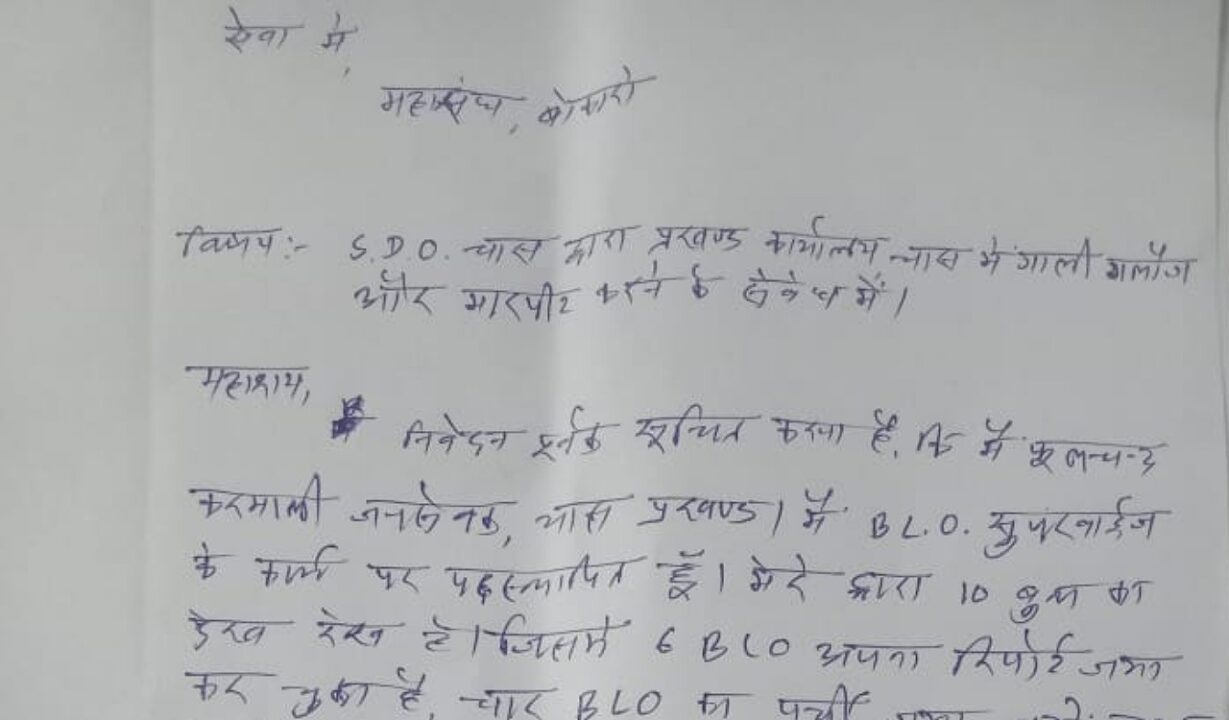 सेवा में,
महासंघ, बोकारो
विषय:- S.D.O. चास द्वारा प्रखण्ड कार्यालय चास में गाली गलौज
और मारपीट करने के संबंध में।
महाशय,
निवेदन पूर्वक सूचित करना है, कि मैं फूलचन्द
करमाली जनसेवक, चास प्रखण्ड। मैं B.L.O. सुपरवाईज
के कार्य पर पदस्थापित हूँ। मेरे द्वारा 10 बुथ का
देख रेख है। जिसमें 6 BLO अपना रिपोर्ट जमा
कर चुका है, चार BLO का पर्ची